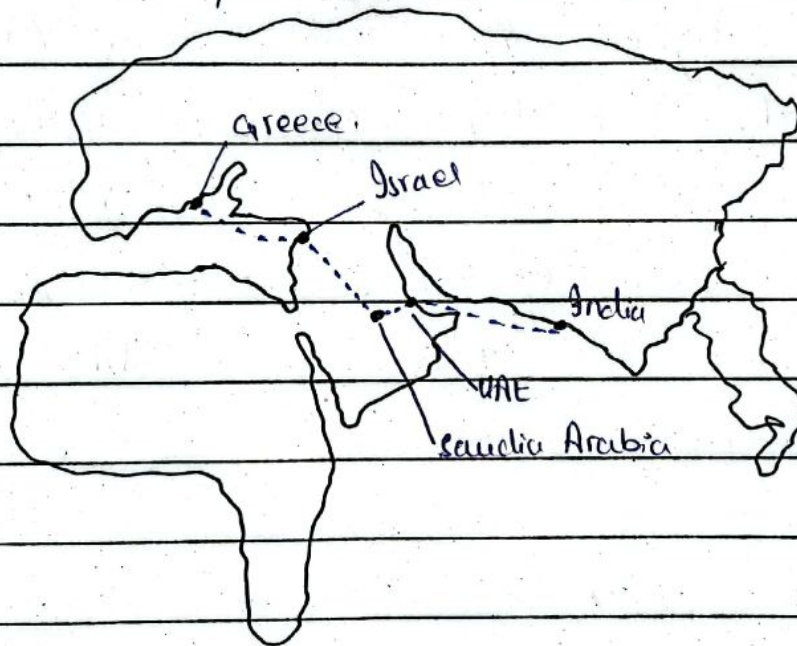 Greece.
Israel
India
UAE
Saudia Arabia